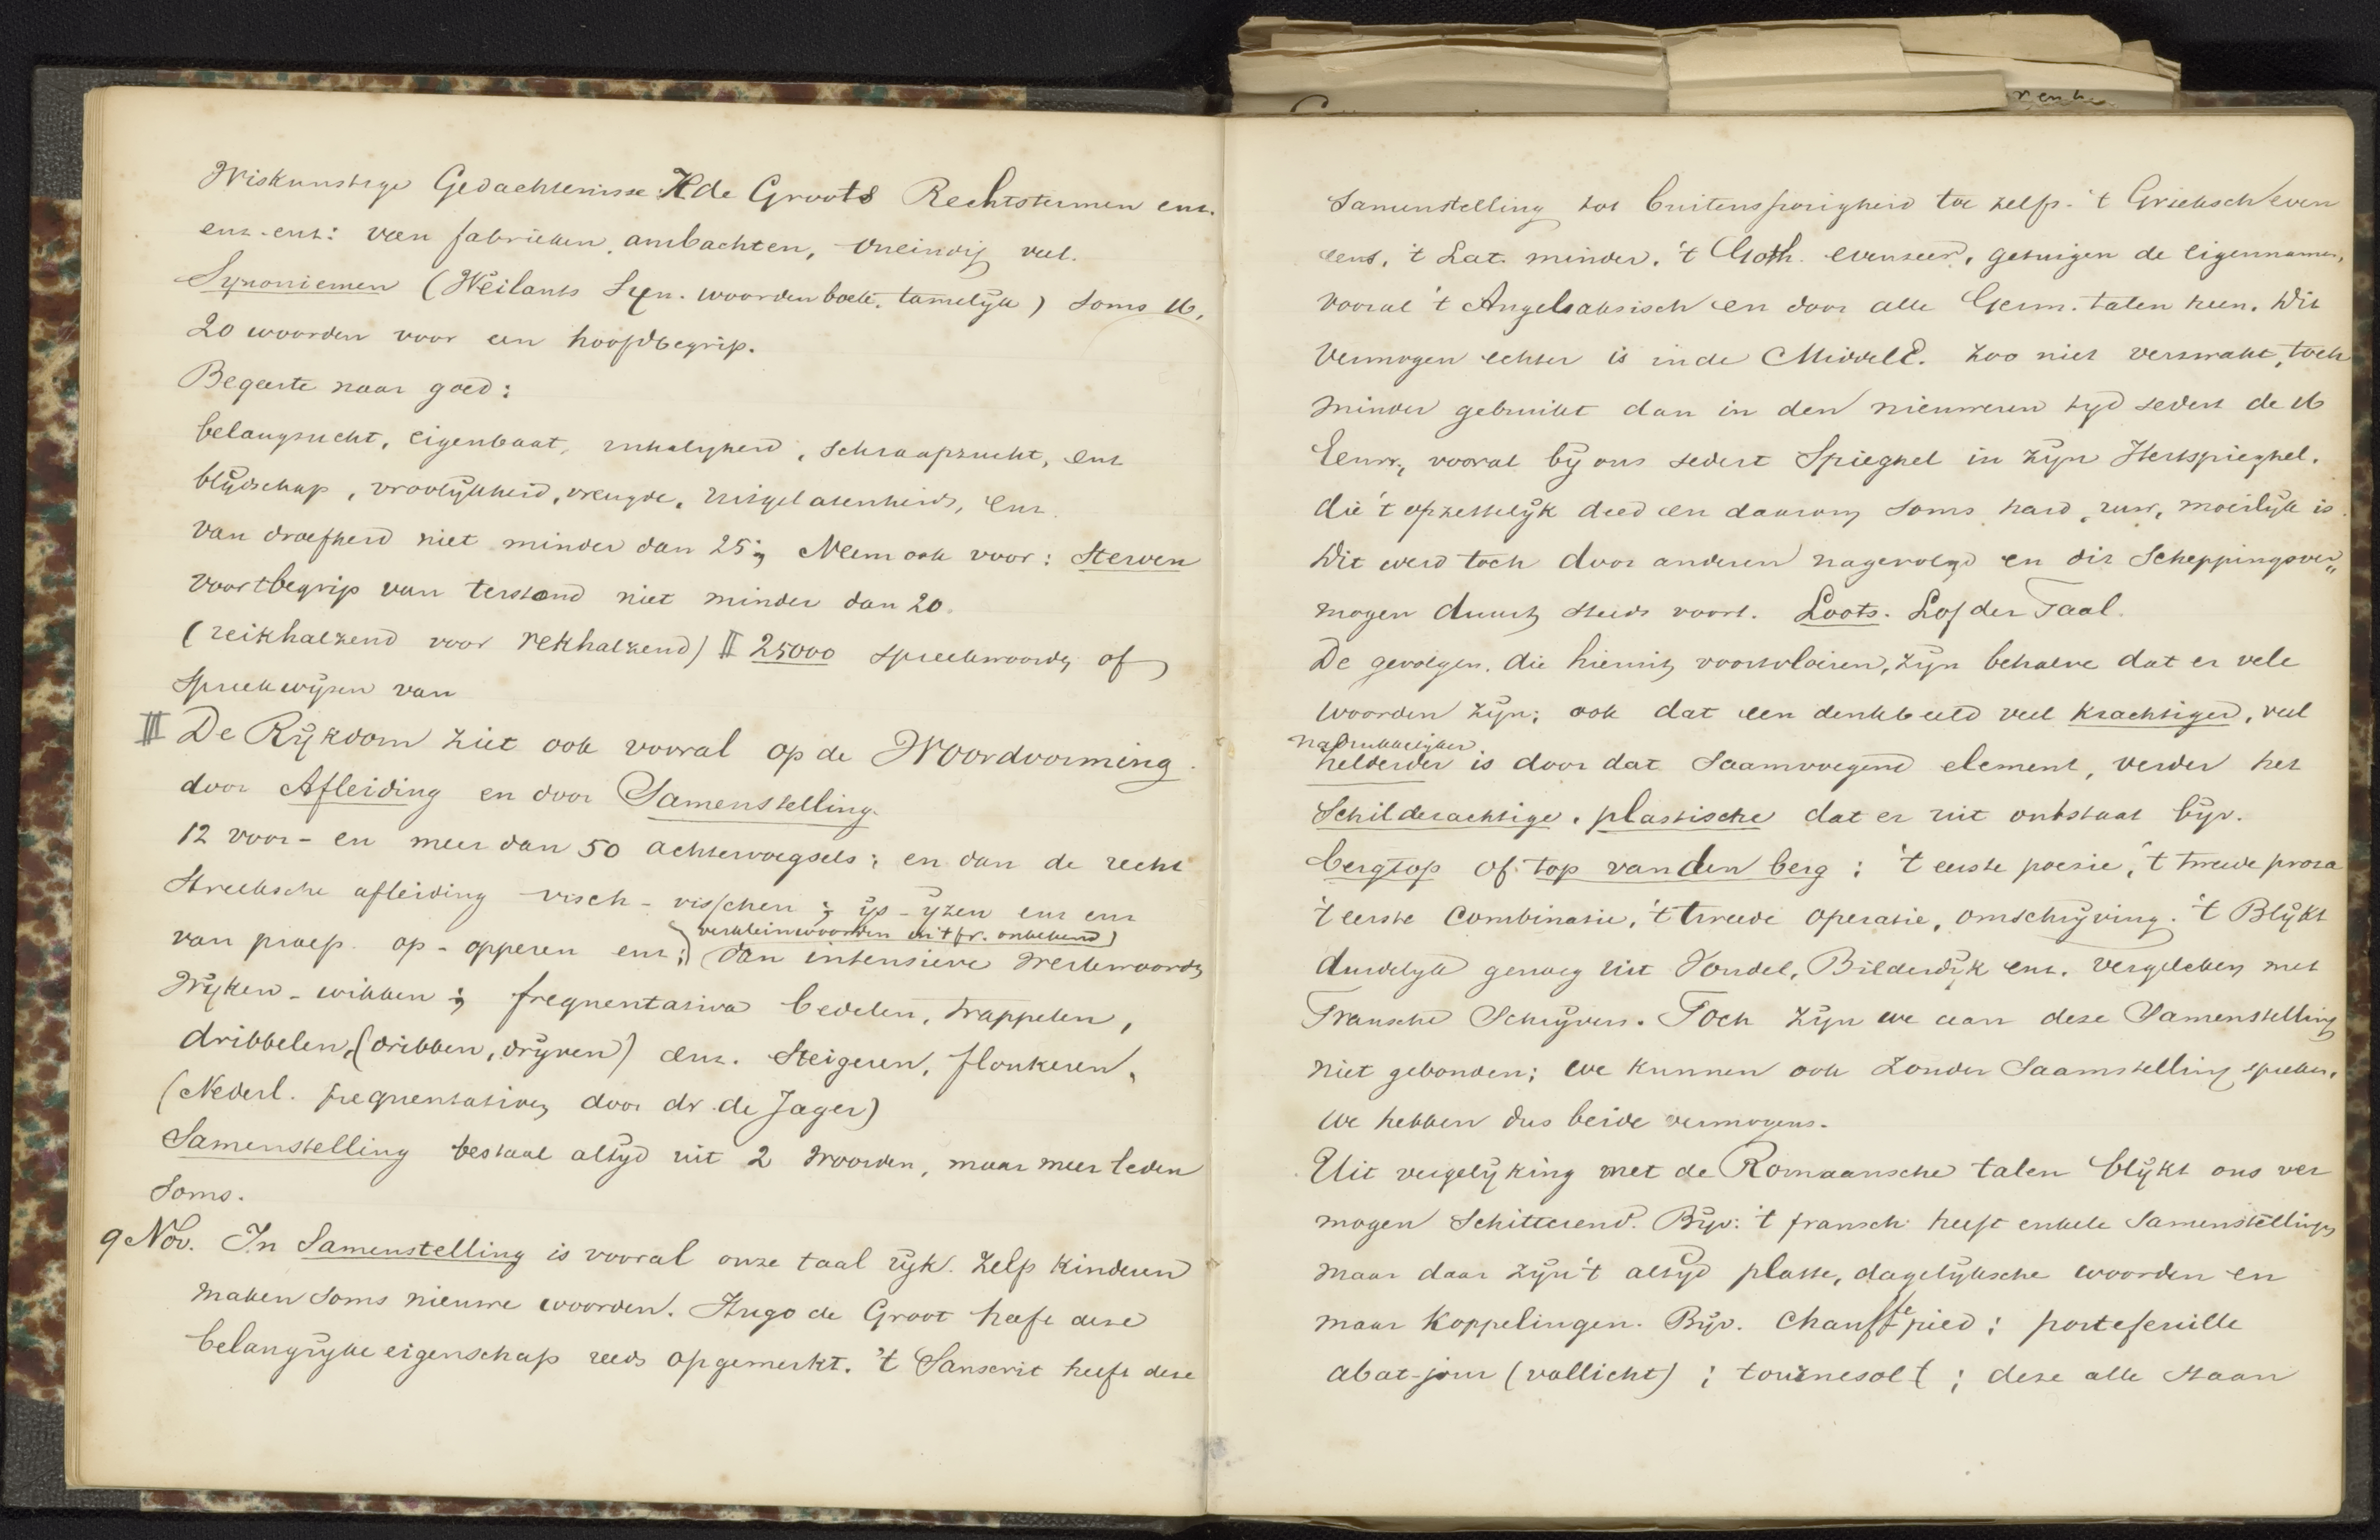 Wiskunstige Gedachtenisse H de Groots Rechtstermen enz.
enz. enz: van fabrieken, ambachten, oneindig veel.
Synoniemen (Weilants Syn. woordenboek. tamelijk) soms 16,
20 woorden voor een hoofdbegrip.
Begeerte naar goed:
belangzucht, eigenbaat, inhaligheid, schraapzucht, enz
blijdschap, vroolijkheid, vreugde, uitgelatenheid, enz.
van droefheid niet minder dan 25; Neem ook voor: Sterven
voortbegrip van terstond niet minder dan 20.
(reikhalzend voor rekhalzend) II 25000 spreekwoorden of
spreekwijzen van
III De Rijkdom ziet ook vooral op de Woordvorming
door Afleiding en door Samenstelling.
12 voor- en meer dan 50 achtervoegsels; en dan de recht
streeksche afleiding visch - visschen; ijs - ijzen enz enz
verkleinwoorden in 't fr. onbekend)
van praep. op - opperen enz; dan intensieve Werkwoorden
Wijken - wikken; frequentativa bedelen, trappelen,
dribbelen, (dribben, drijven) enz. Steigeren, flonkeren,
(Nederl. frequentatieven door dr. de Jager)
Samenstelling bestaat altijd uit 2 Woorden, maar meer leden
soms.
9 Nov. In Samenstelling is vooral onze taal rijk. Zelfs kinderen
maken soms nieuwe woorden. Hugo de Groot heeft deze
belangrijke eigenschap reeds opgemerkt. 't Sanscrit heeft deze
renke
Samenstelling tot buitensporigheid toe zelfs. 't Grieksch even
eens, 't Lat. minder, 't Goth. evenzeer, getuigen de eigennamen,
vooral 't Angelsaksisch en door alle Germ. talen heen. Dit
Vermogen echter is in de MiddelE. zoo niet verzwakt, toch
minder gebruikt dan in den nieuweren tijd sedert de 16
Eeuw, vooral bij ons sedert Spieghel in zijn Hertspieghel.
die 't opzettelijk deed en daarom soms hard, ruw, moeilijk is.
Dit werd toch door anderen nagevolgd en dit Scheppingsver„
mogen duurt steeds voort. Loots. Lof der Taal.
De gevolgen, die hieruit voortvloeien, zijn behalve dat er vele
woorden zijn; ook dat een denkbeeld veel krachtiger, veel
nadrukkelijker
helderder is door dat Saamvoegend element, verder het
Schilderachtige, plastische dat er uit ontstaat bijv.
bergtop of top van den berg: 't eerste poezie, 't tweede proza
't eerste combinatie, 't tweede operatie, omschrijving. 't Blijkt
duidelijk genoeg uit Vondel, Bilderdijk enz. vergeleken met
Fransche Schrijvers. Toch zijn we aan deze Samenstelling
niet gebonden; we kunnen ook zonder Saamstelling spreken.
We hebben dus beide vermogens.
Uit vergelijking met de Romaansche talen blijkt ons ver
mogen Schitterend. Bijv: 't fransch heeft enkele Samenstellingen
maar daar zijn 't altijd platte, dagelijksche woorden en
maar Koppelingen. Bijv. chauffepied; portefeuille
abat-jour (vallicht); tournesolt; deze alle staan